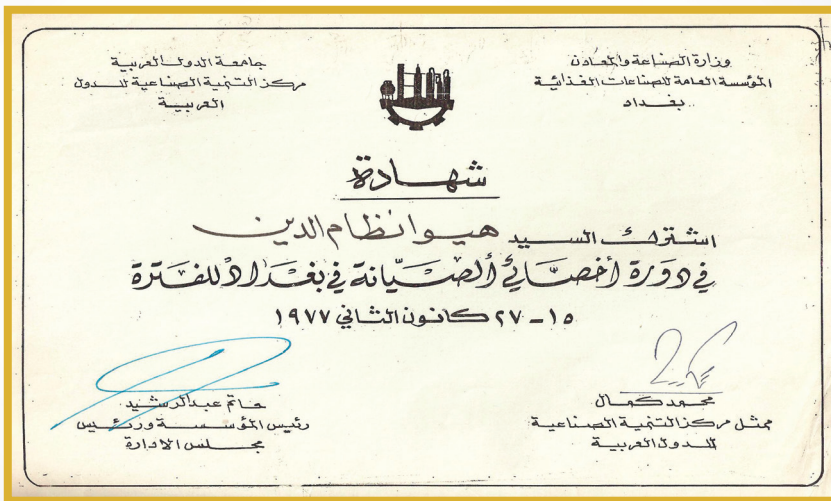 وزارة الصناعة والمعادن
المؤسسة العامة للصناعات الغذائية
بغـــداد
جامعة الدول العربية
مركز التنمية الصناعية للــدول
العربيــة
شهــادة
اشترك السيد هيوا نظام الدين
في دورة أخصائي الصيانة في بغداد للفترة
١٥ - ٢٧ كانون الثاني ١٩٧٧
محمد كمال
ممثل مركز التنمية الصناعية
للدول العربية
حاتم عبدالرشيد
رئيس المؤسسة ورئيس
مجلس الادارة